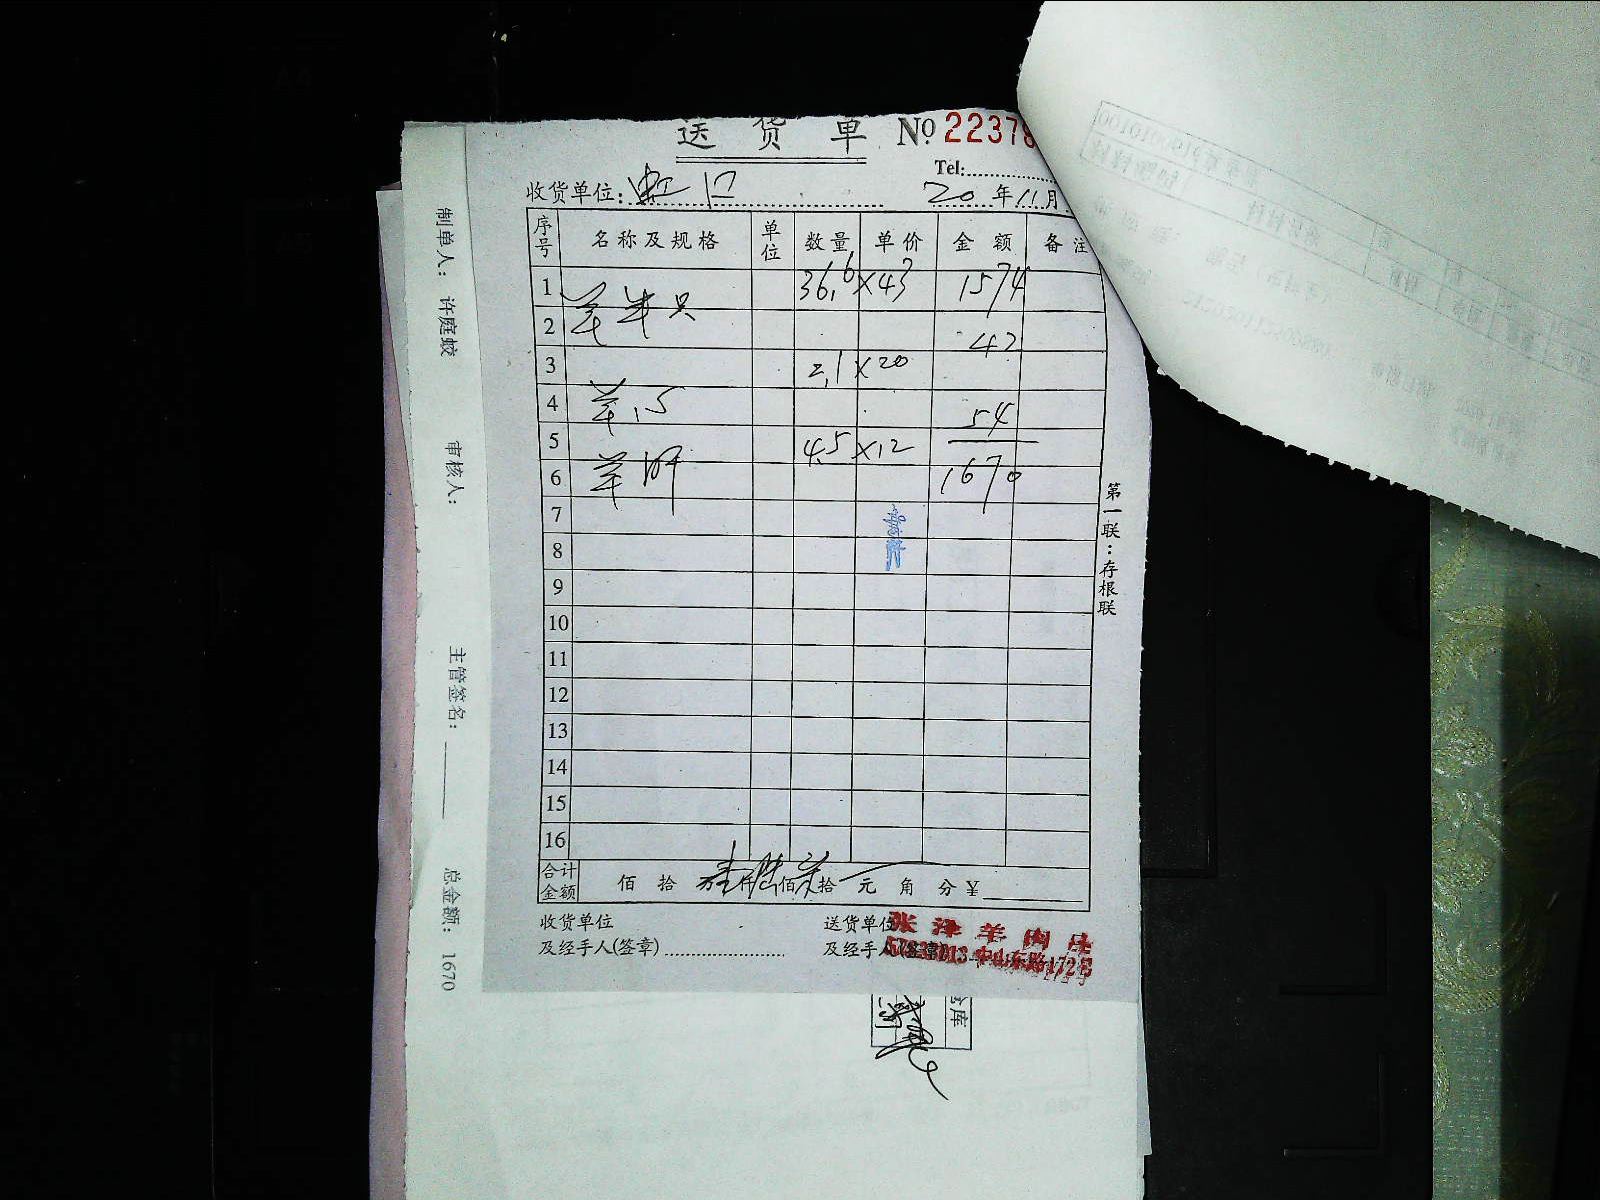 送货单 №22378
Tel:
收货单位: 虹口 20年11月
序号 名称及规格 单位 数量 单价 金额 备注
1 羊半只 36.6×43 1574
2 42
3 2.1×20
4 羊 54
5 4.5×12
6 羊肝 1670
7
8
9
10
11
12
13
14
15
16
合计金额 佰 拾 壹仟陆佰柒拾 元 角 分 ¥
收货单位
及经手人(签章)
送货单位
及经手人
张泽羊肉庄
中山东路172号
第一联:存根联
制单人: 许庭蛟 审核人: 主管签名: 总金额: 1670